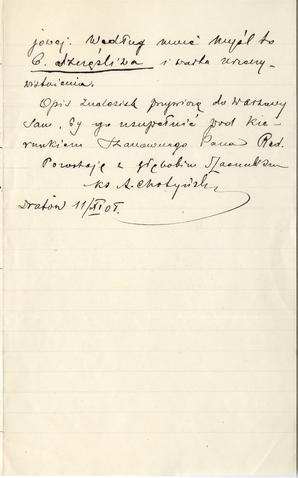 jowej. Według mnie myśl to
b. szczęśliwa i warta urzeczy-
wistnienia.
Opis znalezisk przywiozę do Warszawy
sam, by go uzupełnić pod kie-
runkiem Szanownego Pana Red.
Pozostaję z głębokim szacunkiem
ks A. Chotyński
Dratów 11/XI 07.